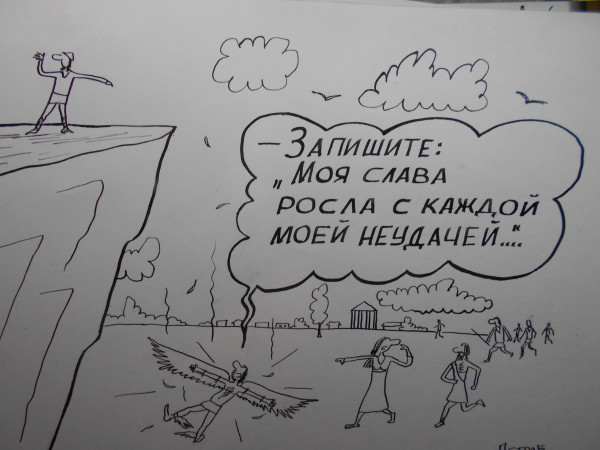 — Запишите:
„Моя слава
росла с каждой
моей неудачей...."